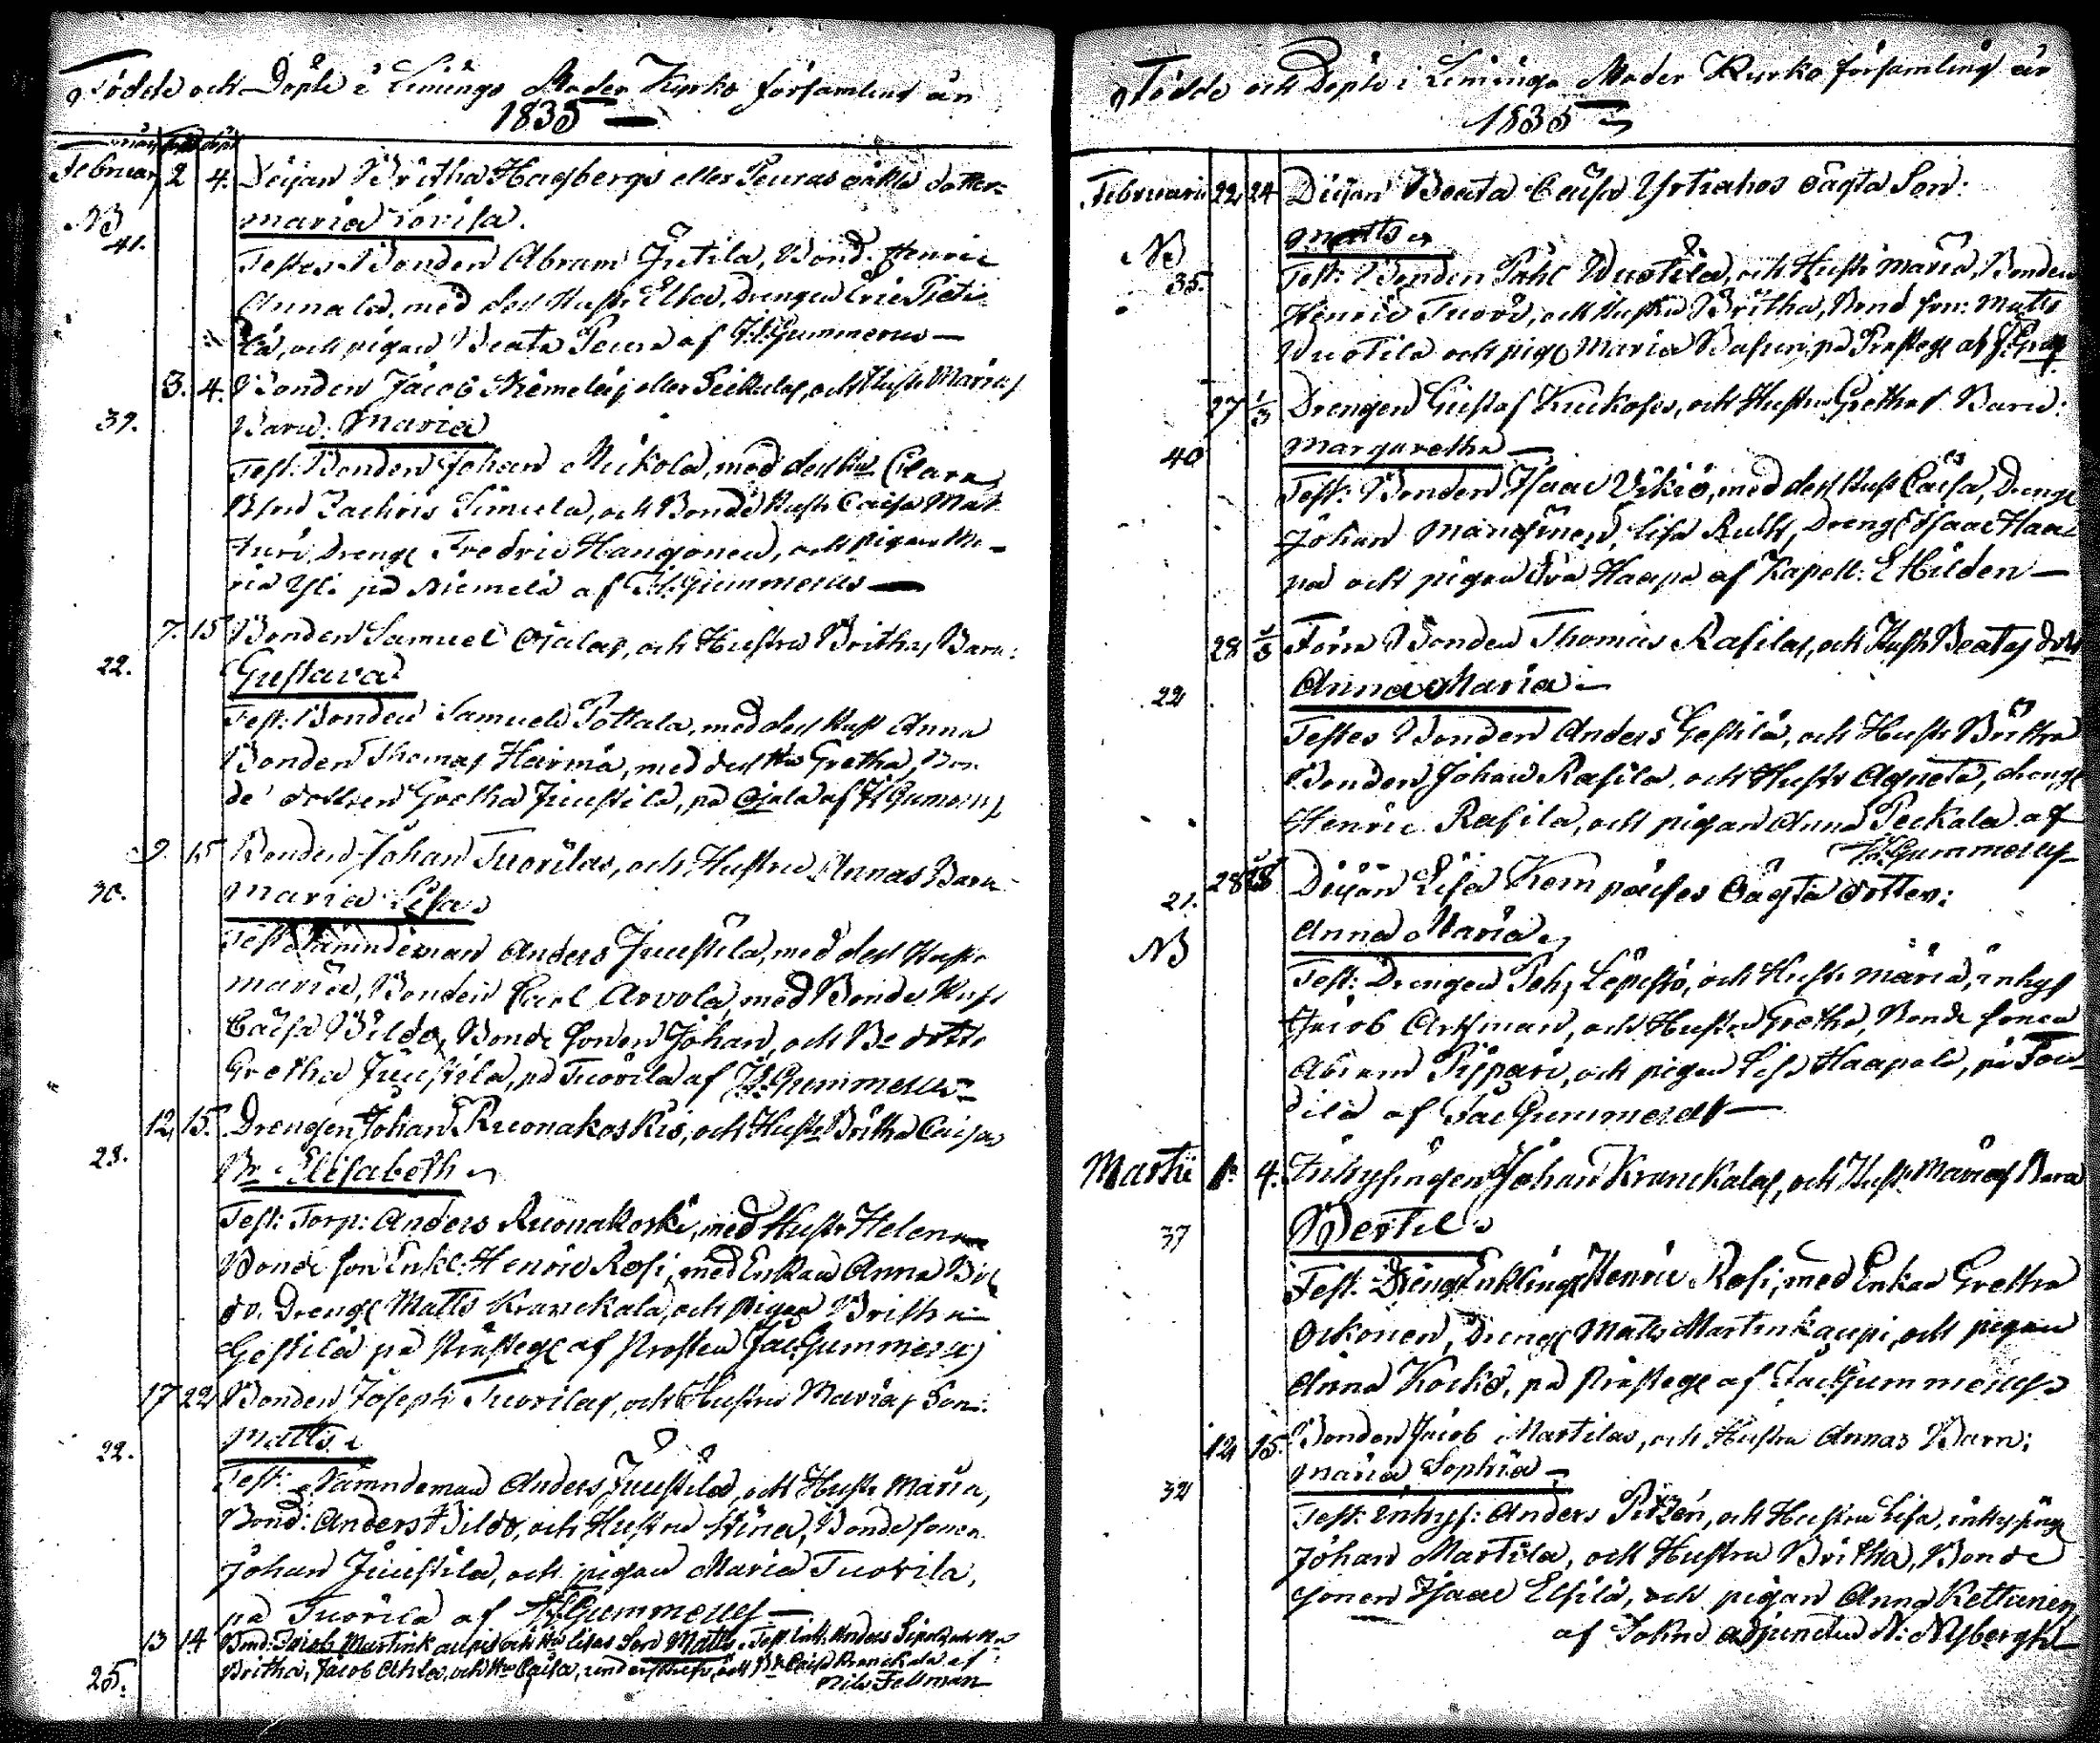 Födde och Döpte i Limingo Moder Kyrko församling år
1835
Februarij 2 4. Pigan Britha Hagbergs eller Peuras oäkta dotter
Maria Lovisa.
NB
41.
Testes Bonden Abram Jutila, Bond. Henric
Annala, med dess Hustr Elsa, Drengen Eric Pieti-
lä, och pigan Beata Peura af J. Gummerus
3. 4. Bonden Jacob Niemeläs eller Seikulas, och Hustr Marias
39. Barn: Maria
Test: Bonden Johan Mickola, med dess Hu Clara
Bond Zachris Simula, och Bonde Hustr Caisa Mat
turi, Dreng Fredric Hangonen, och pigan Ma-
ria Yli på Niemelä af J. Gummerus
7. 15 Bonden Samuel Ojalas, och Hustru Brithas Barn:
22. Gustava
Test: Bonden Samuel Pottala, med dess Hust Anna
Bonden Thomas Heirmä, med dess Hu Gretha, Bon-
de dottren Gretha Juustila, på Ojala af J Gumerus
9. 15 Bonden Johan Tuorilas, och Hustru Annas Barn
30. Maria Lisa
Test Nämndeman Anders Juustila, med dess Hustr
Maria, Bonden Carl Arvola, med Bonde Hustr
Caisa Bildo, Bonde sonen Johan, och Be dottr
Gretha Juustila, på Tuorila af J. Gummerus
12, 15. Drengen Johan Ruonakoskis, och Hustr Britha Caisas
23. Br Elisabeth
Test: Torp: Anders Ruonakoski, med Hustr Helena
Bonde son Enkl: Henric Rosi, med Enkan Anna Bil
do. Dreng Matts Kranckala, och pigan Britha
Gestilä på Prästeg af Prosten Jac: Gummerus
17 22 Bonden Joseph Tuorilas, och Hustru Marias Son:
22. Matts
Test: Nämndeman Anders Juustila, och Hustr Maria,
Bond: Anders Bildo, och Hustru Stina, Bonde sonen
Johan Juustila, och pigan Maria Tuorila,
på Tuorila af J Gummerus
13 14 Bond: Jacob Martinkaupis och Hu Lisas Son Matts. Test: Inh. Anders Sipola och Hu
25. Britha, Jacob Ahla, och Hu Caisa, och Caisa Kranckala af
Nils Fellman
Födde och Döpte i Limingo Moder Kyrko församling år
1835
Februarii 22 24 Pigan Beata Caisa Yrtiahos oägta Son:
Matts
NB
35.
Test: Bonden Påhl Wuotila, och Hustr Maria, Bonden
Henric Tuori, och Hustru Britha, Bond son: Matts
Wuotila och pig Maria på Prästeg af
27 1/3 Drengen Gustaf Kuckolas, och Hustru Grethas Barn:
40 Margaretha
Test: Bonden Isaac Wikiö, med dess Hust Caisa, Dreng
Johan Manginen, Lisa Rulh, Dreng Isaac Haa-
pa och pigan Eva Haapa af Kapell: E Hildén
28 1/3 Förre Bonden Thomas Rasilas, och Hustr Beatas dotter
22 Anna Maria
Testes Bonden Anders Gestilä, och Hustr Britha
Bonden Johan Rasila, och Hustr Agneta, dreng
Henric Rasila, och pigan Anna Peckala af
J. Gummerus
28 Pigan Lisa Kempaises Oägta dotter:
21.
Anna Maria
NB
Test: Drengen Joh, Lepistö, och Hustr Maria, inhys
Jacob Artman, och Hustru Gretha, Bonde sonen
Abram Pippari, och pigan Lisa Haapala, på Tou-
dila af Jac Gummerus
Martii 1. 4. Inhysingen Johan Kranckalas, och Hustr Marias Barn
37 Bertil
Test: Dreng Enkling Henric Rosi, med Enkan Gretha
Orkonen, Dreng Matts Martinkaupi, och pigan
Anna Kocko, på Prästeg af Jac. Gummerus
12 15. Bonden Jacob Martilas, och Hustru Annas Barn:
32 Maria Sophia
Test: Inhys: Anders Pitzén, och Hustru Lisa, inhysing
Johan Martila, och Hustru Britha, Bonde
sonen Isaac Elfilä, och pigan Anna Kettunen,
af Sockne adjuncten N: Nyberg